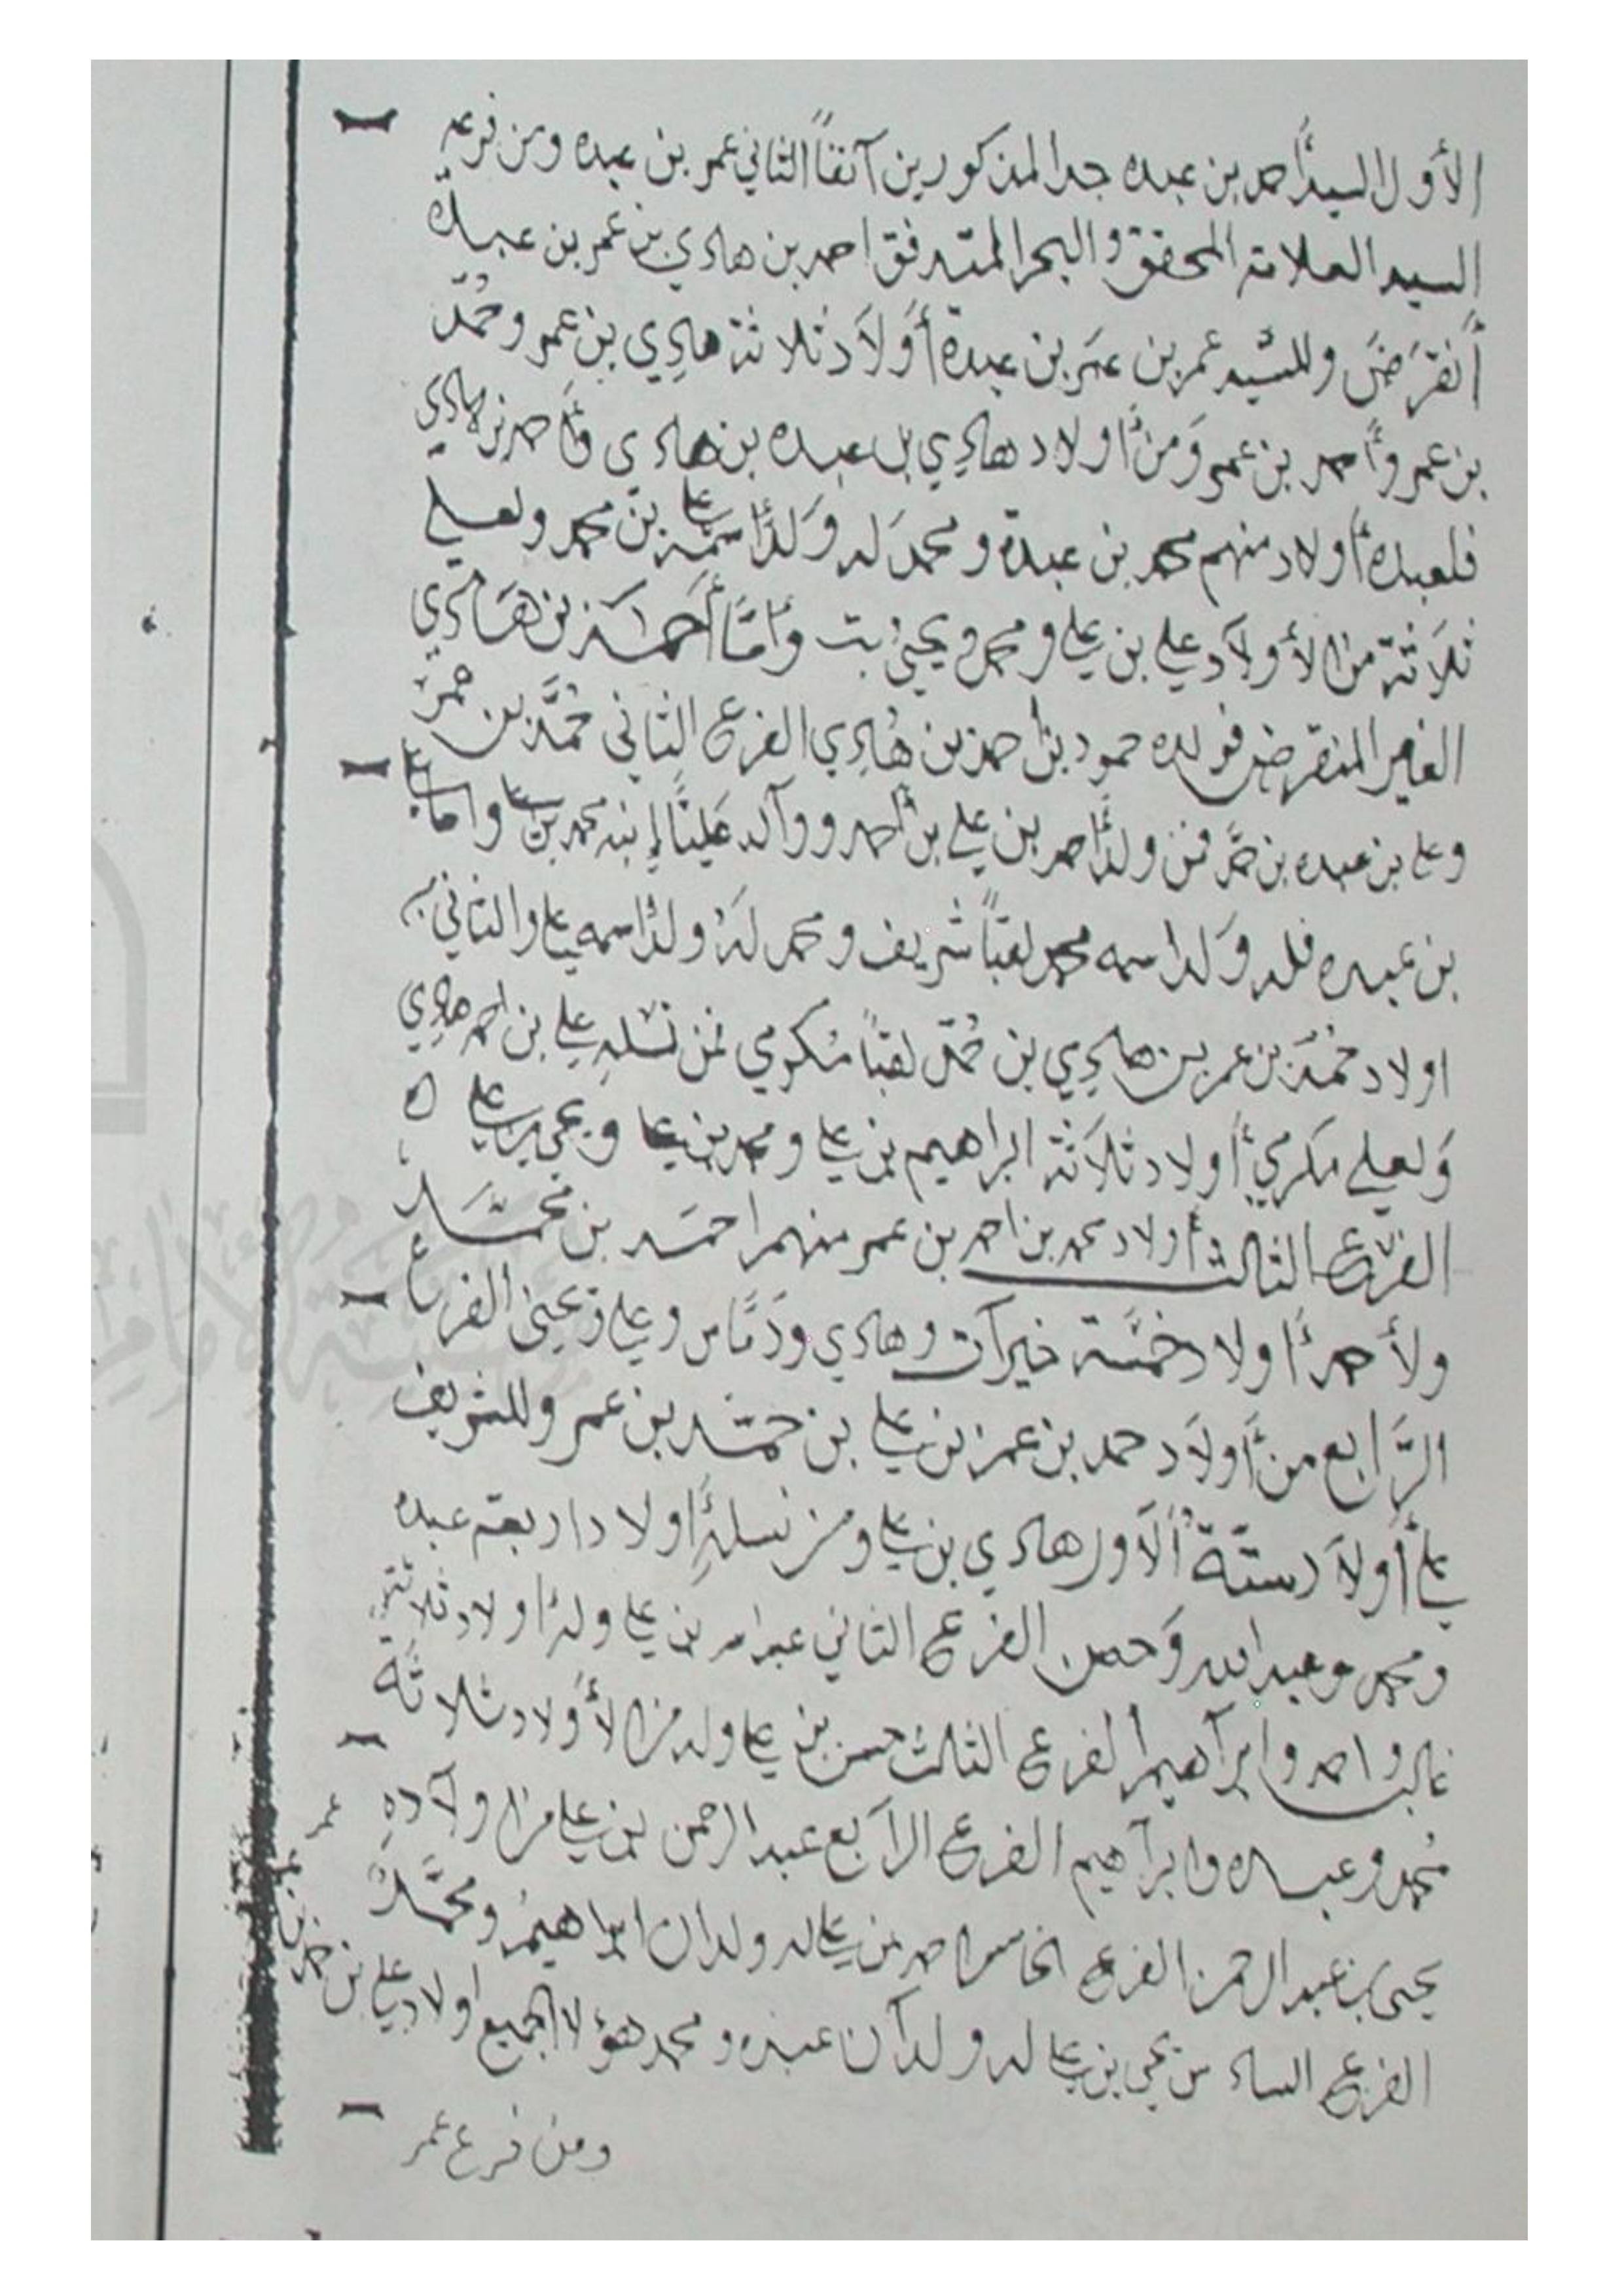 الأول السيد أحمد بن عبده جد المذكورين آنفاً الثاني عمر بن عبده ومن فرعه
السيد العلامة المحقق والبحر المتدفق احمد بن هادي بن عمر بن عبده
أنقرَضَ وللسيد عمر بن عمر بن عبدة أَوْلاَد ثلاثة هادِي بن عمر وحُمّد
بن عمر وأحمد بن عمر وَمن أولاد هادِي بن عبده بن هادي وأحمد بن هادي
فلعبده أولاد منهم محمد بن عبدة ومحمد له وَلدٌ اسمه علي بن محمد ولعلي
ثلاَثة من الأولاَد علي بن علي ومحمد ويحيى وأمَّا أحمد بن هَادِي
الغير المنقرض فولده حمود بن احمد بن هُادِي الفرع الثاني حُمَّد بن عمر
وعلي بن عبده بن حمَّد فمن ولدُ احمد بن علي بن أحمد ووآلد علياً إبنه محمد بن علي واما
بن عبده فله وَلد اسمه محمد لقباً شريف ومحمد لهُ ولدٌ اسمه علي والثاني
اولاد حُمَّد بن عمر بن هادِي بن حُمّد لقباً مُكرمي فمن نسْلهِ علي بن احمد هادي
وَلعلي مكرمي أولاد ثلاَثة ابراهيم بن علي ومحمد بن علي ويحيى بن علي ه
الفرْع الثالث أولاد محمد بن احمد بن عمر منهم احمَد بن محمَّد
ولأحمد أولاد خمسَة خيرآت وهادي ودَمَّاس وعلي وَيحيى الفرع
الرَّابع من أَولاَد حمد بن عمر بن علي بن حمَّد بن عمر وللشريف
علي أولاَد ستّة ألأول هادي بن علي ومن نسلهِ أولاد اربعة عبده
ومحمد وعبدالله وَحسن الفرع الثاني بن علي وله أولاد ثلاثة
غالب واحمد وإبرآهيم الفرع الثالث حسن بن علي وله من الأوْلاد ثلاثة
مُحمد وعبده وابرآهيم الفرع الرآبع عبدالرحمن بن علي من اولآدهِ
يحيى بن عبدالرحمن الفرع الخامس احمد بن علي له ولدان ابراهيم ومحمَّد
الفرع السادس يحي بن علي له ولدآن عبده ومحمد هؤلا الجميع اولاد علي بن حمد بن
عمر
ومن فرع عمر